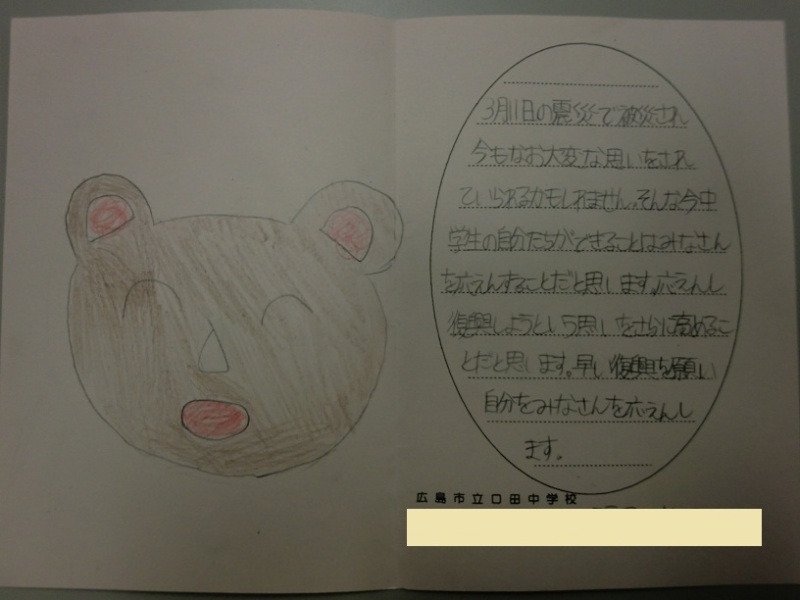 3月11日の震災で被災され
今もなお大変な思いをされ
ていられるかもしれません。そんな今中
学生の自分たちができることはみなさん
を応えんすることだと思います。応えんし
復興しようという思いをさらに高めるこ
とだと思います。早い復興を願い
自分をみなさんを応えんし
ます。
広島市立口田中学校